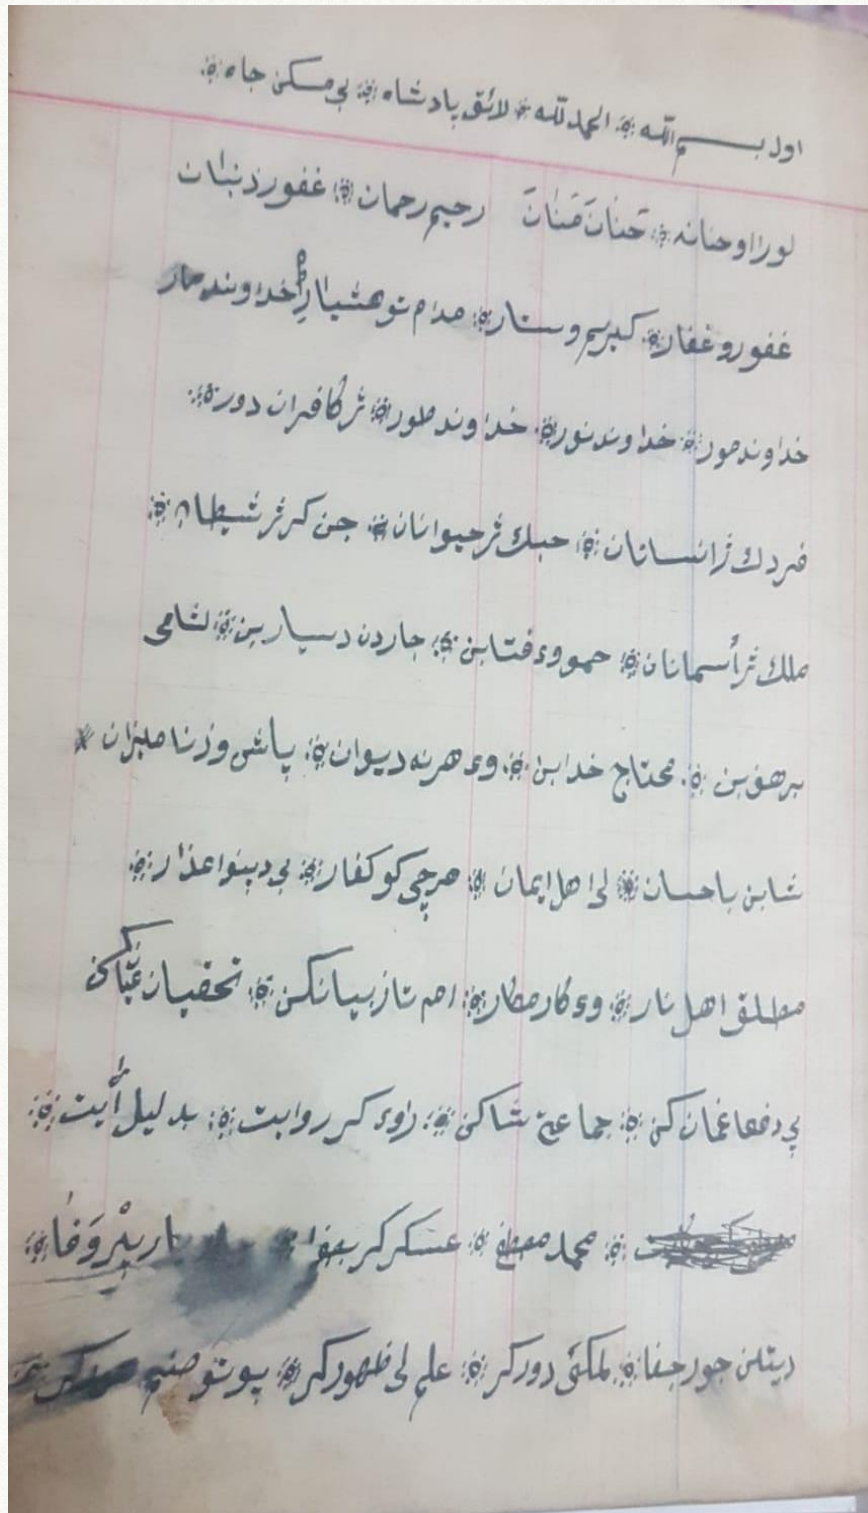 اول بسم الله الحمد لله لائق پادشاه بي مسكن جاه
لورا وحنانه حَنان مَنانَ رحيم رحمان غفور ذنبان
غفور و غفار كبريم وستار مدام توهشيار خداوند مار
خداوند مور خداوند نور خداوند طور ژ كافران دور
فردك ژ انسانان حبك ژ حيوانان جن كر ژ شيطان
ملك ژ أسمانان حمو وء فتابن جاردن دسيارين لشامى
برهف بن محتاج خدا بن وء هرنه ديوان پاش وزنا ميزان
شابن باحسان لى اهل ايمان هرچى كو كفار بى دينوا عذار
مطلق اهل نار وء كار مكار ام تاز بيانكن تحقيان
پى دفعا غمان كن جماعتى شاكن راوء كر روايت بدليل أيت
محمد مصطفى عسكر كر يار پيْروَفا
ديتن جور جفا لمكئ دور كر علم لى ظهور كر پوتو صنم